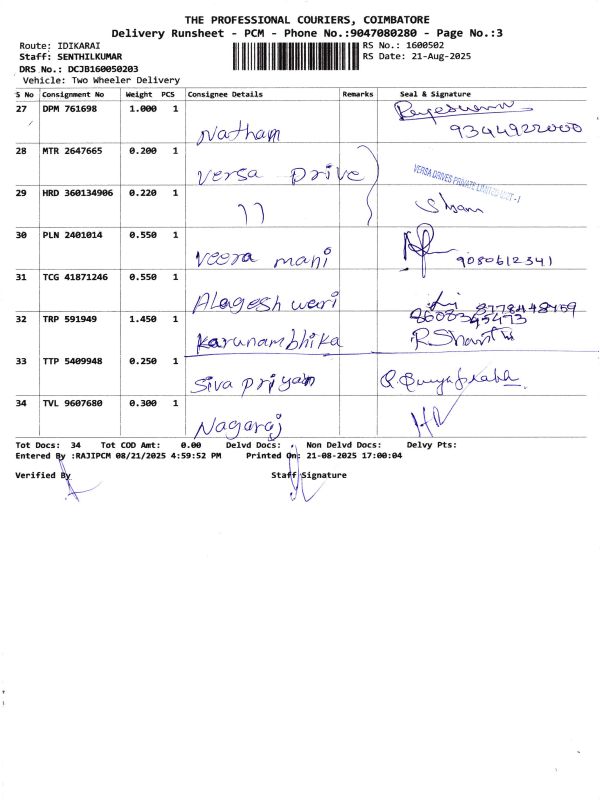 THE PROFESSIONAL COURIERS, COIMBATORE
Delivery Runsheet - PCM - Phone No.:9047080280 - Page No.:3
Route: IDIKARAI RS No.: 1600502
Staff: SENTHILKUMAR RS Date: 21-Aug-2025
DRS No.: DCJB160050203
Vehicle: Two Wheeler Delivery
S No Consignment No Weight PCS Consignee Details Remarks Seal & Signature
27 DPM 761698 1.000 1 Natham 9344922000
28 MTR 2647665 0.200 1 Versa prive VERSA DRIVES PRIVATE LIMITED
29 HRD 360134906 0.220 1 11 Shyam
30 PLN 2401014 0.550 1 Veera mani 9080612341
31 TCG 41871246 0.550 1 Alagesh wari 8778448459
32 TRP 591949 1.450 1 Karunambhika R. Shanthi
33 TTP 5409948 0.250 1 Siva priyan
34 TVL 9607680 0.300 1 Nagaraj
Tot Docs: 34 Tot COD Amt: 0.00 Delvd Docs: Non Delvd Docs: Delvy Pts:
Entered By :RAJIPCM 08/21/2025 4:59:52 PM Printed On: 21-08-2025 17:00:04
Verified By Staff Signature